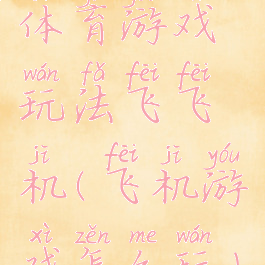 体育游戏
wán fǎ fēi fēi
玩法飞飞
jī fēi jī yóu
机(飞机游
xì zěn me wán
戏怎么玩)